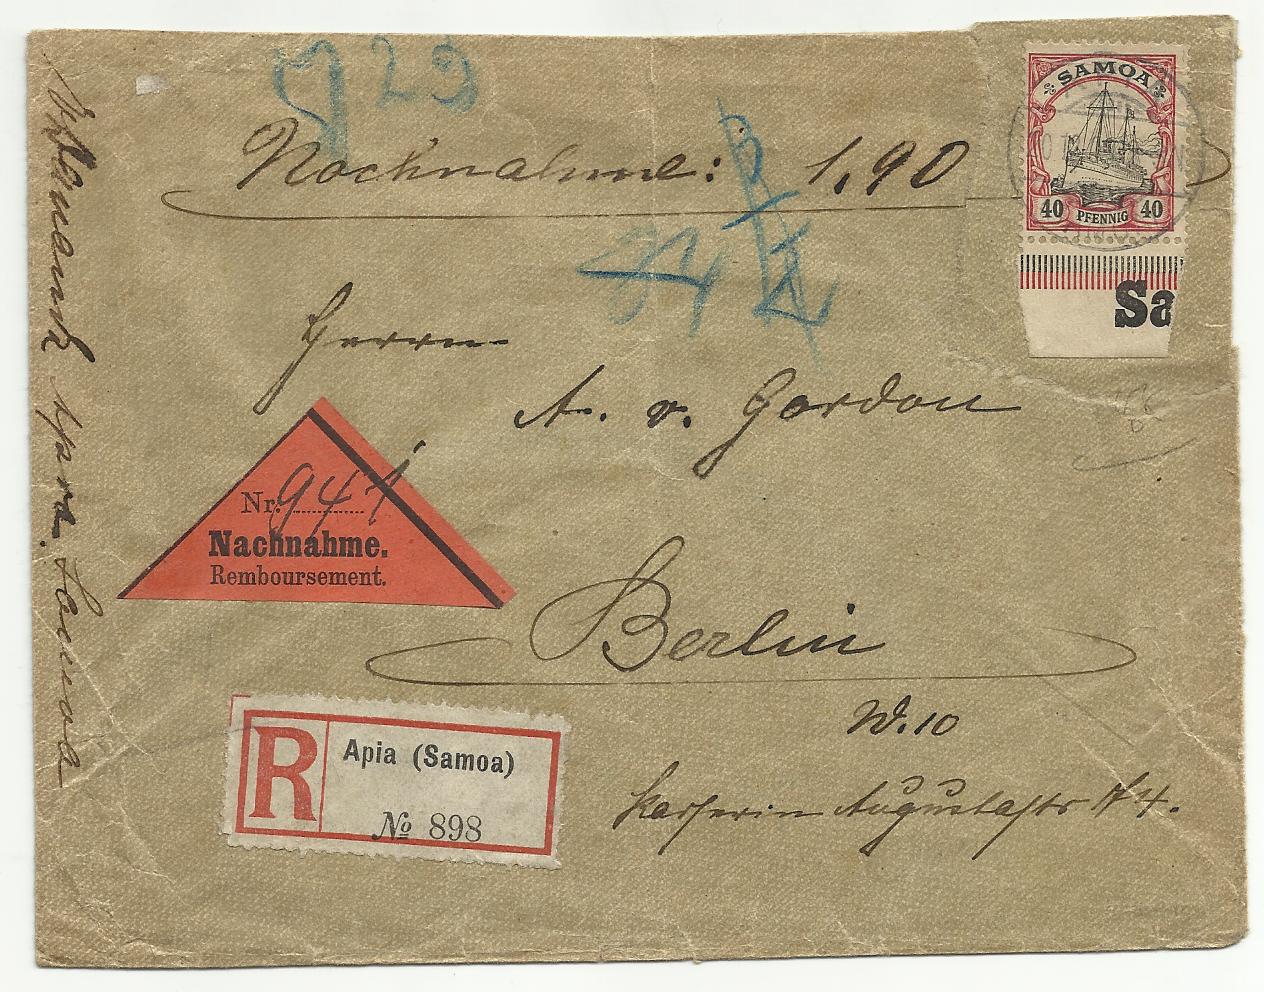 729
Nachnahme: 1,90
SAMOA
40 PFENNIG 40
Sa
Herrn
A. v. Gordon
Nr. 941
Nachnahme.
Remboursement.
Berlin
W. 10
Kaiserin Augustastr N 4.
R
Apia (Samoa)
№ 898
Apia. Samoa